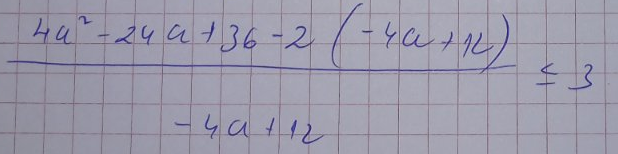 4a² - 24a + 36 - 2 (-4a + 12)
≤ 3
-4a + 12